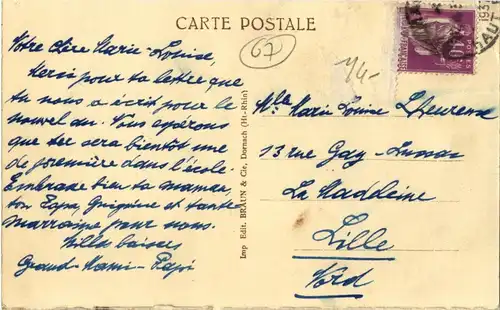 CARTE POSTALE
67
Notre chère Marie-Louise,
Merci pour ta lettre que
tu nous a écrit pour le
nouvel an. Nous espérons
que tu sera bientôt une
de première dans l'école.
Embrasse bien ta maman,
ton Papa, et tante
Marraine pour nous.
Mille baisers
Grand-Mami - Papi
Imp Edit. BRAUN & Cie, Dornach (Ht-Rhin)
Mlle Marie Louise Lheureux
13 rue Gay-Lussac
La Madeleine
Lille
Nord